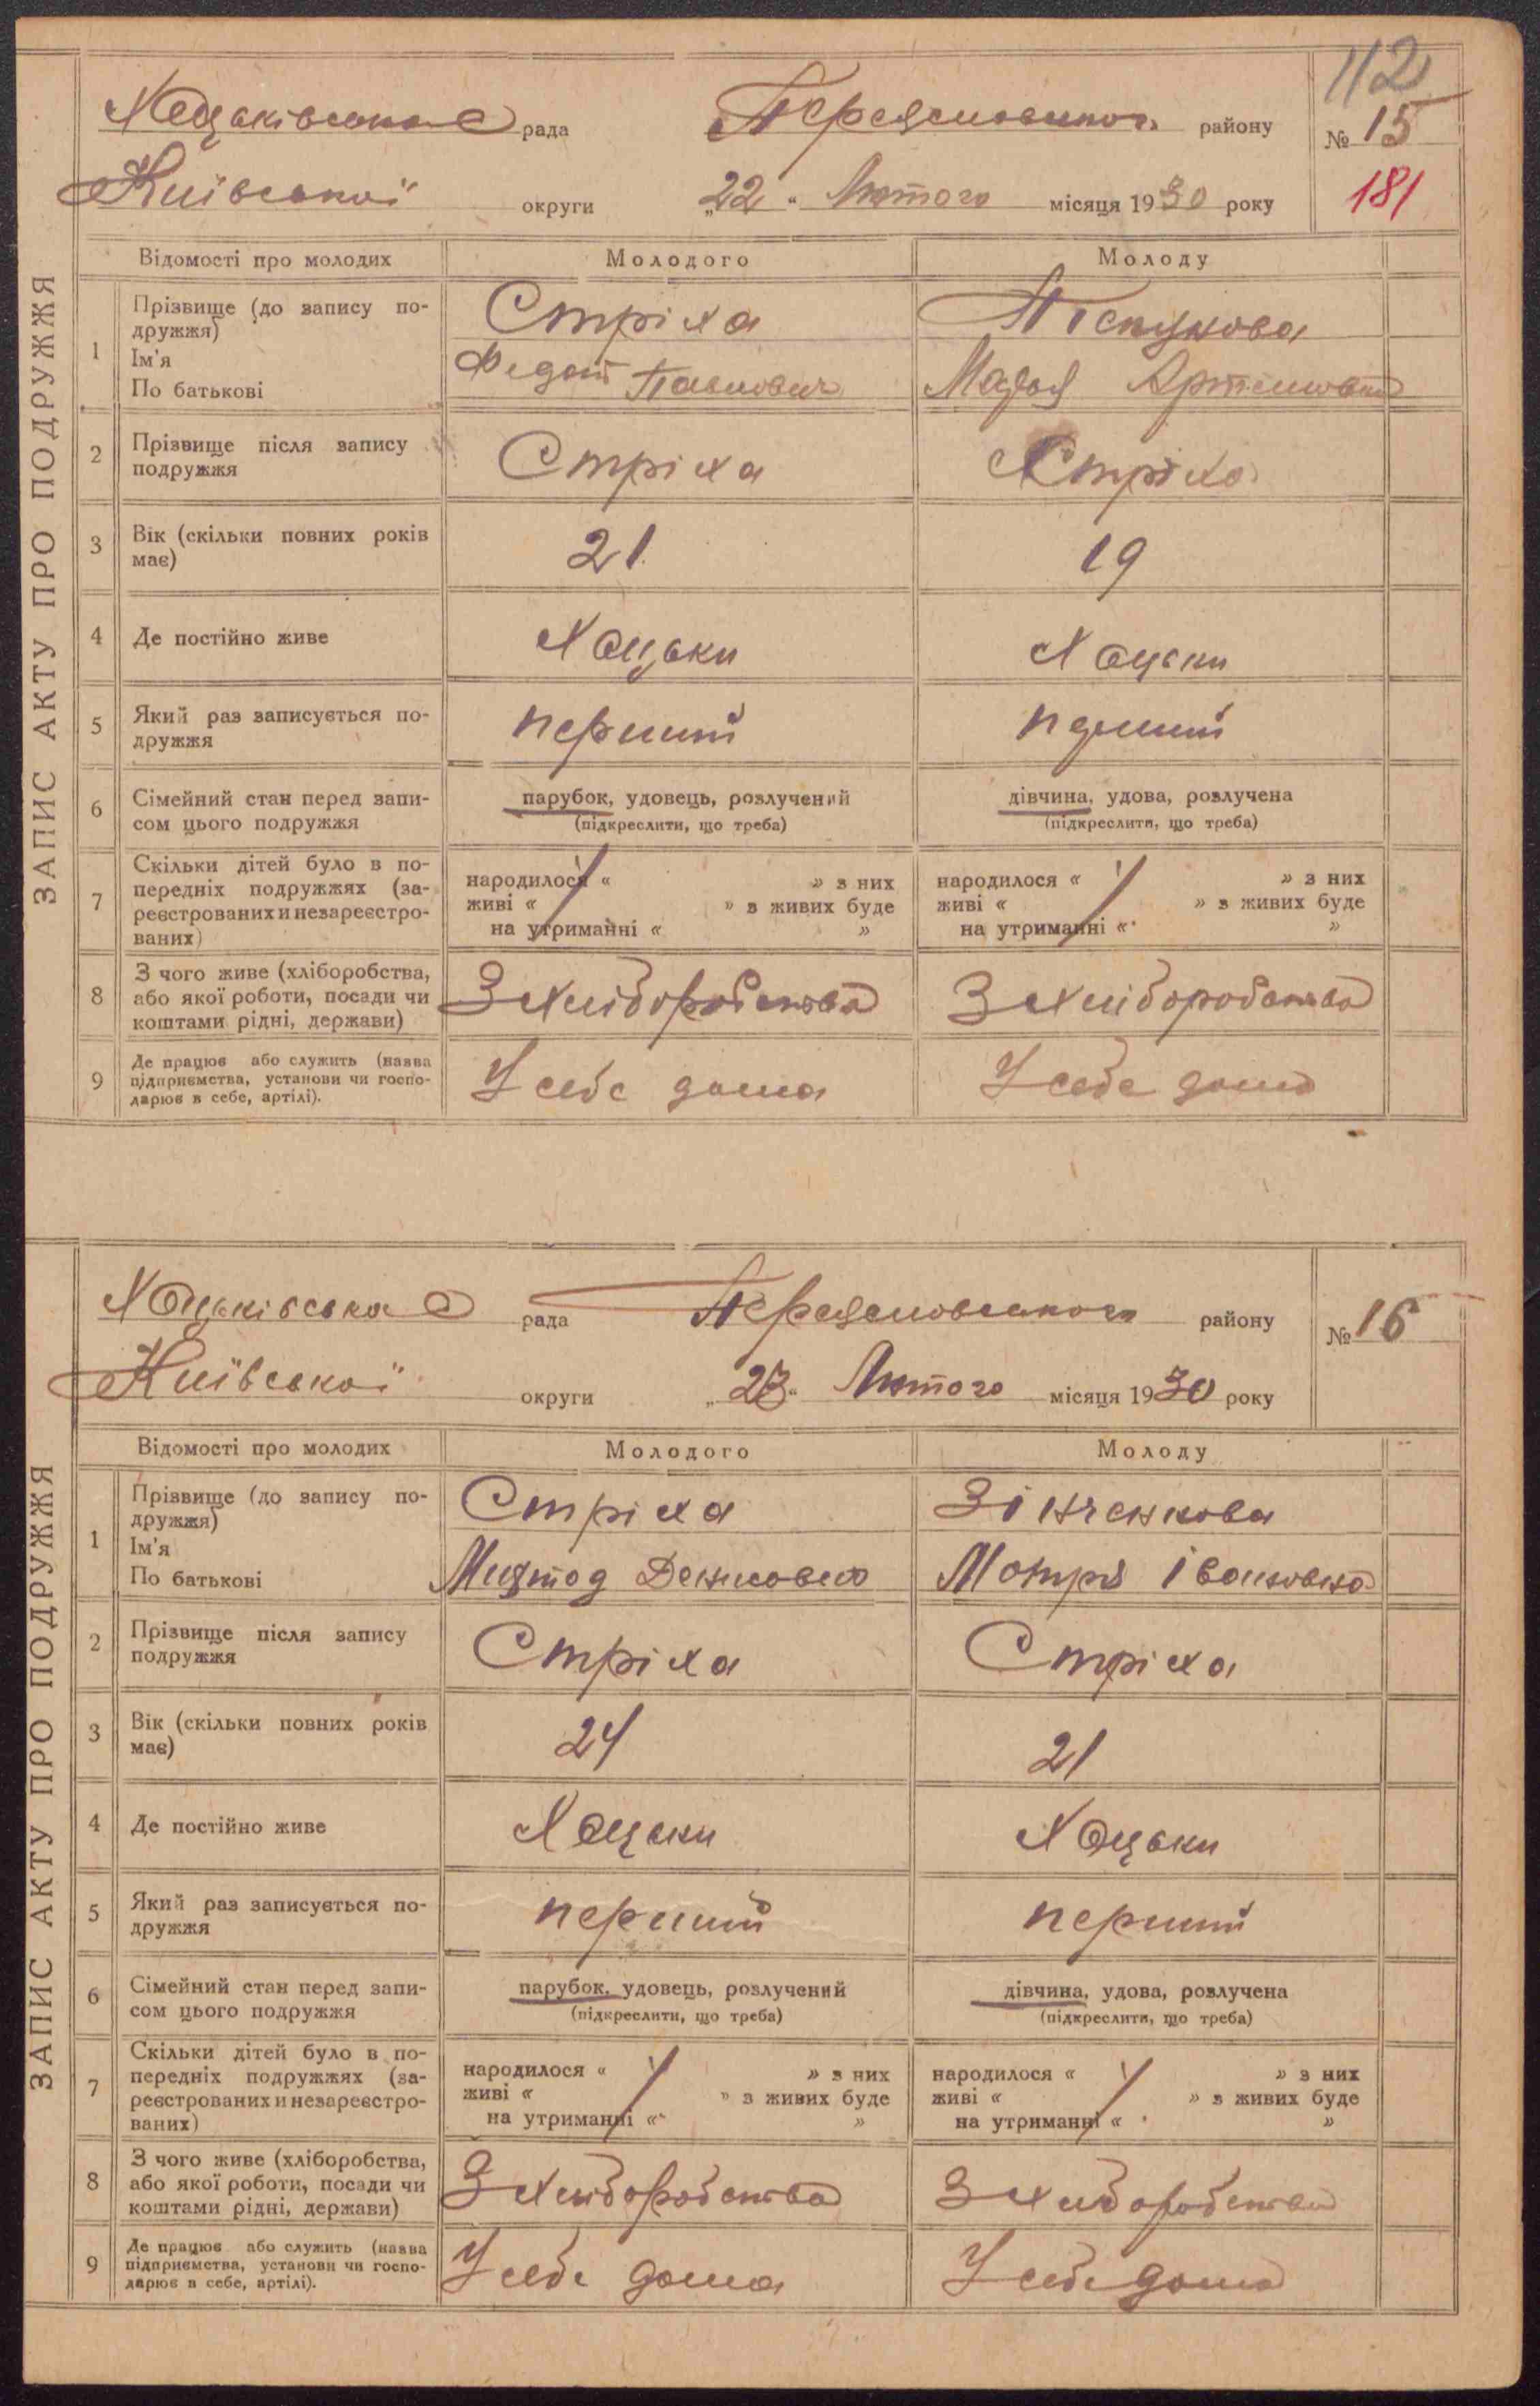 112
Хоцьківська рада Переяславського району № 15
Київської округи „22“ Лютого місяця 1930 року 181
ЗАПИС АКТУ ПРО ПОДРУЖЖЯ
Відомості про молодих Молодого Молоду
1 Прізвище (до запису по-
дружжя)
Стріха
Ім'я
По батькові
Федот Павлович Марья Артемовна
2 Прізвище після запису
подружжя
Стріха Стріха
3 Вік (скільки повних років
має)
21 19
4 Де постійно живе Хоцьки Хоцьки
5 Який раз записується по-
дружжя
перший перший
6 Сімейний стан перед запи-
сом цього подружжя
парубок, удовець, розлучений дівчина, удова, розлучена
(підкреслити, що треба) (підкреслити, що треба)
7 Скільки дітей було в по-
передніх подружжях (за-
реєстрованих и незареєстро-
ваних)
народилося « » з них народилося « » з них
живі « » з живих буде живі « » з живих буде
на утриманні « » на утриманні « »
8 З чого живе (хліборобства,
або якої роботи, посади чи
коштами рідні, держави)
З хліборобства З хліборобства
9 Де працює або служить (назва
підприємства, установи чи госпо-
дарює в себе, артілі).
У себе дома У себе дома
Хоцьківська рада Переяславського району № 16
Київської округи „23“ Лютого місяця 1930 року
ЗАПИС АКТУ ПРО ПОДРУЖЖЯ
Відомості про молодих Молодого Молоду
1 Прізвище (до запису по-
дружжя)
Стріха Зінченкова
Ім'я
По батькові
Денисович Мотря Івановна
2 Прізвище після запису
подружжя
Стріха Стріха
3 Вік (скільки повних років
має)
24 21
4 Де постійно живе Хоцьки Хоцьки
5 Який раз записується по-
дружжя
перший перший
6 Сімейний стан перед запи-
сом цього подружжя
парубок, удовець, розлучений дівчина, удова, розлучена
(підкреслити, що треба) (підкреслити, що треба)
7 Скільки дітей було в по-
передніх подружжях (за-
реєстрованих и незареєстро-
ваних)
народилося « » з них народилося « » з них
живі « » з живих буде живі « » з живих буде
на утриманні « » на утриманні « »
8 З чого живе (хліборобства,
або якої роботи, посади чи
коштами рідні, держави)
З хліборобства З хліборобства
9 Де працює або служить (назва
підприємства, установи чи госпо-
дарює в себе, артілі).
У себе дома У себе дома